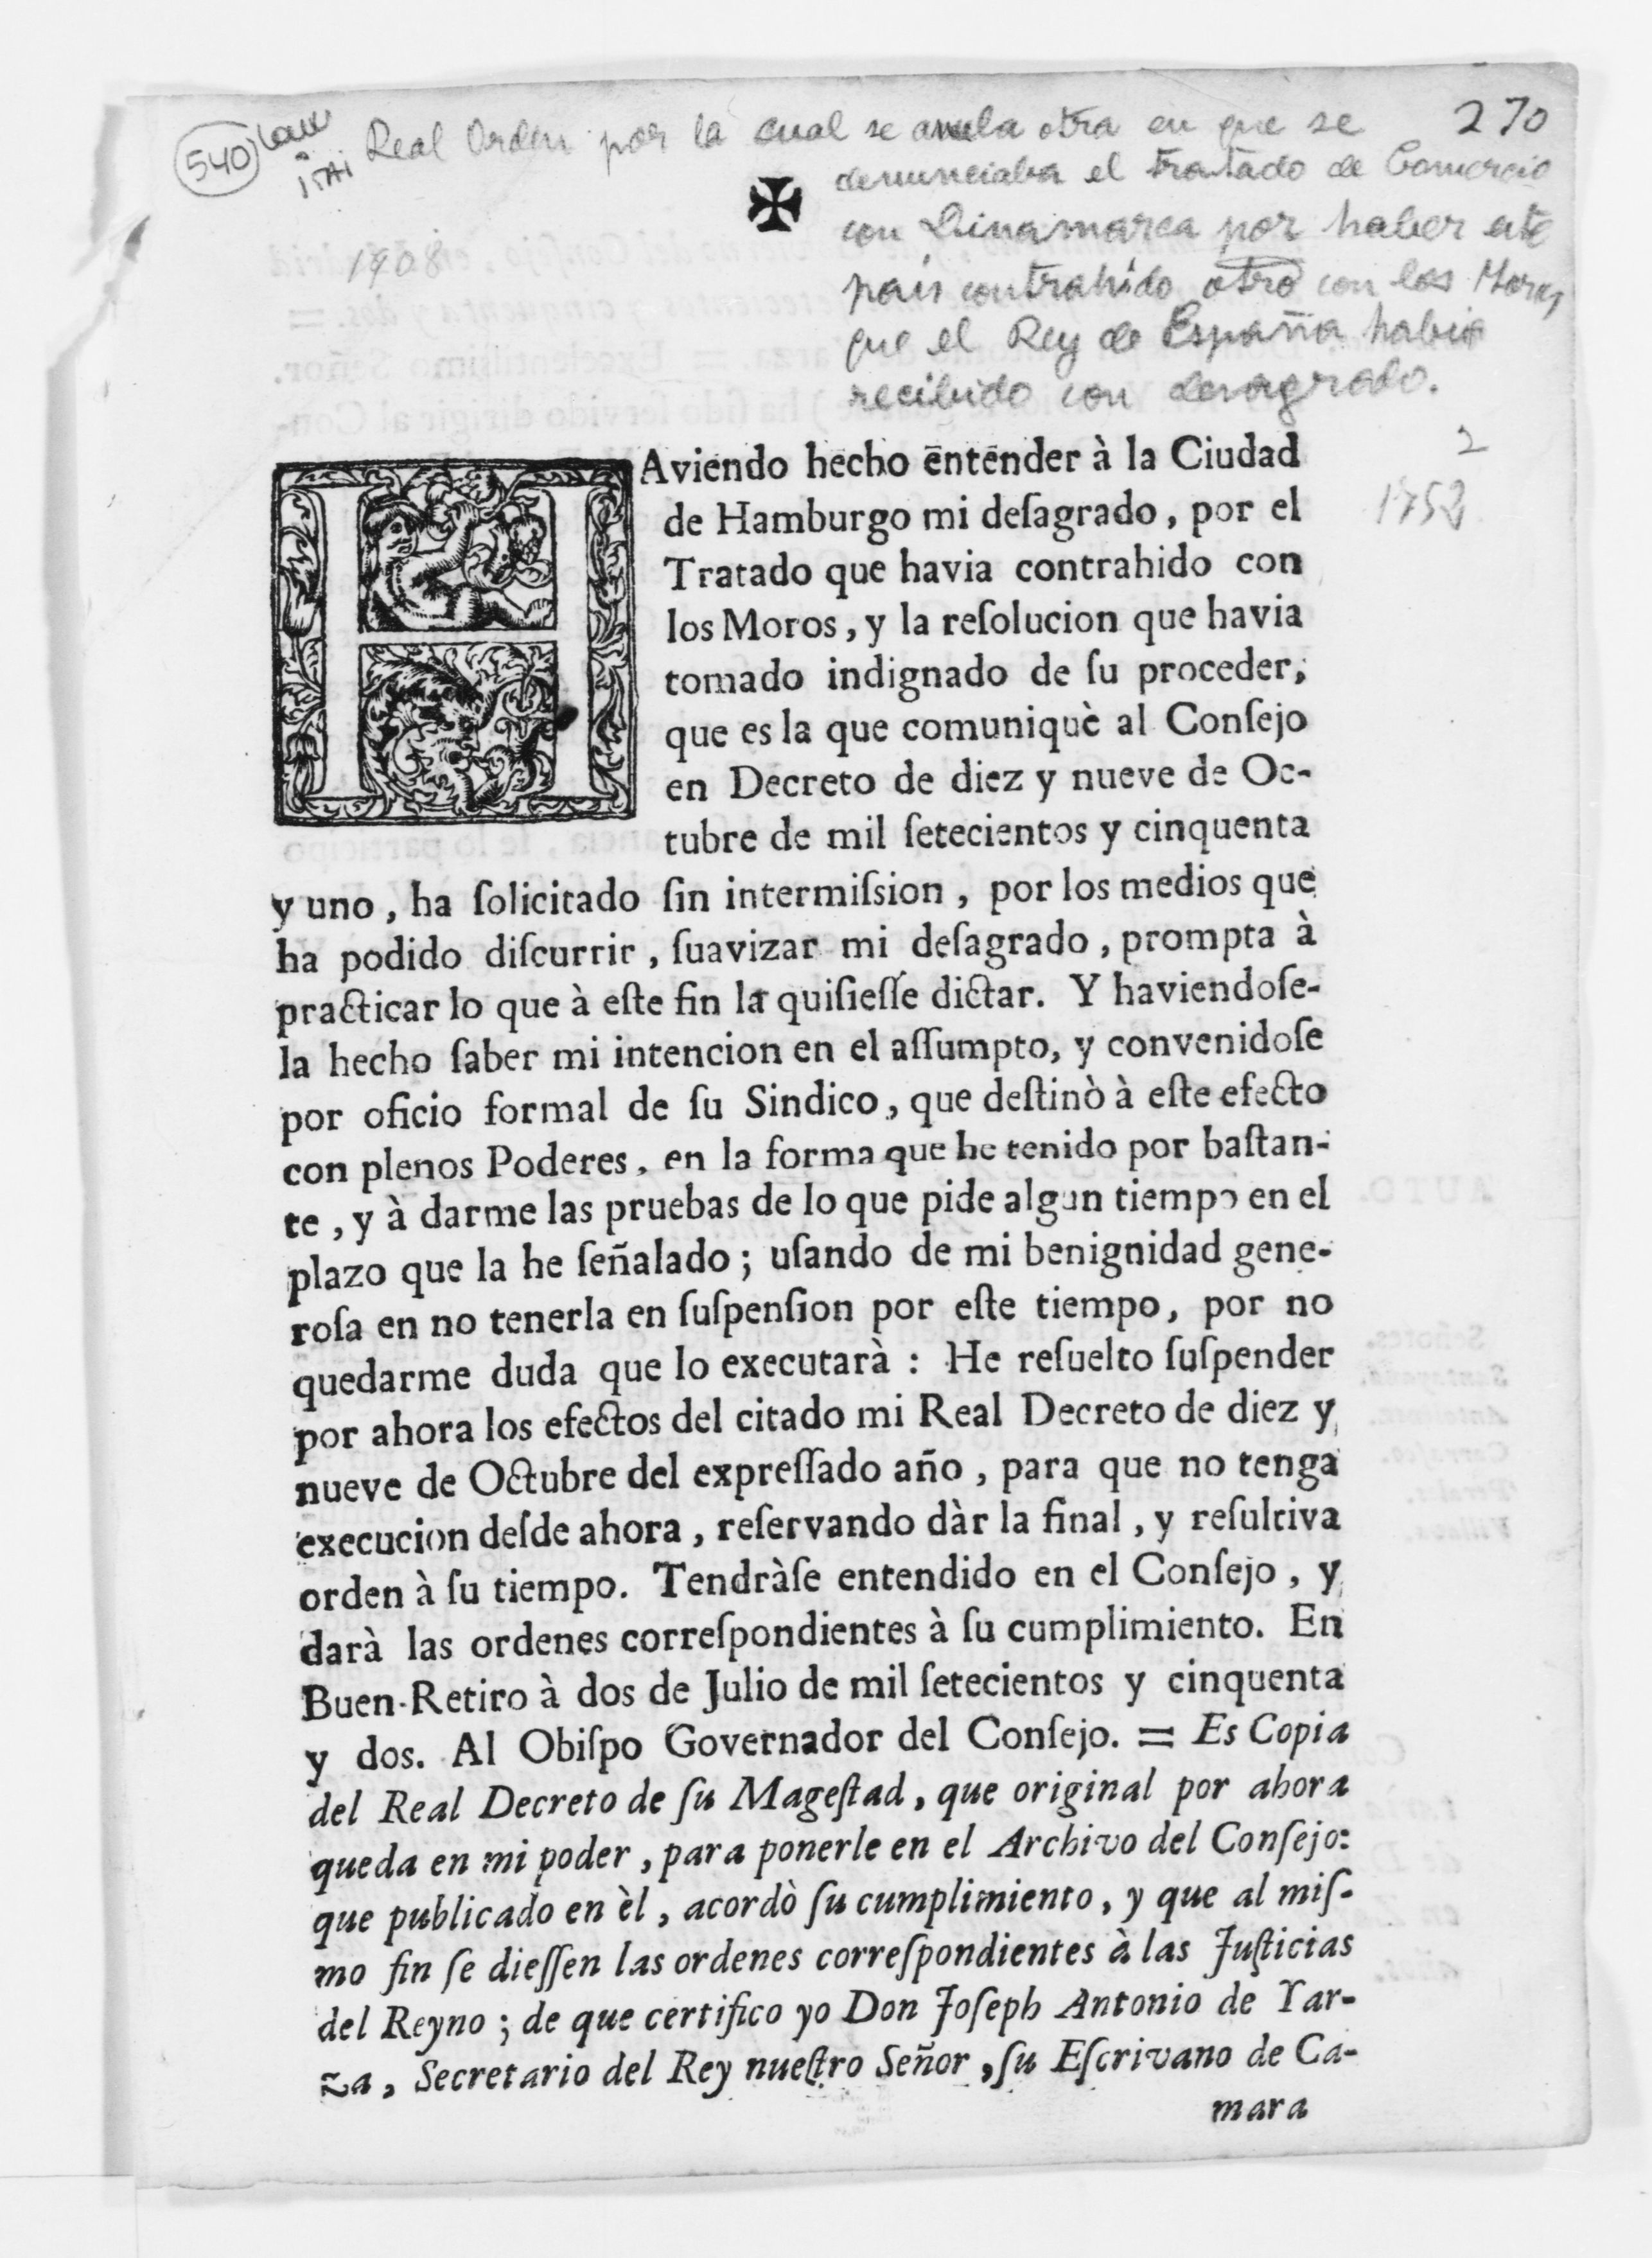 540
Real Orden por la cual se anula otra en que se
270
denunciaba el tratado de Comercio
con Dinamarca por haber este
1908
pais contrahido otro con los Moros,
que el Rey de España habia
recibido con desagrado.
2
1752
HAviendo hecho entender à la Ciudad
de Hamburgo mi deſagrado, por el
Tratado que havia contrahido con
los Moros, y la reſolucion que havia
tomado indignado de ſu proceder;
que es la que comuniquè al Conſejo
en Decreto de diez y nueve de Oc-
tubre de mil ſetecientos y cinquenta
y uno, ha ſolicitado ſin intermiſsion, por los medios que
ha podido diſcurrir, ſuavizar mi deſagrado, prompta à
practicar lo que à eſte fin la quiſieſſe dictar. Y haviendoſe-
la hecho ſaber mi intencion en el aſſumpto, y convenidoſe
por oficio formal de ſu Sindico, que deſtinò à eſte efecto
con plenos Poderes, en la forma que he tenido por baſtan-
te, y à darme las pruebas de lo que pide algun tiempo en el
plazo que la he ſeñalado; uſando de mi benignidad gene-
roſa en no tenerla en ſuſpenſion por eſte tiempo, por no
quedarme duda que lo executarà: He reſuelto ſuſpender
por ahora los efectos del citado mi Real Decreto de diez y
nueve de Octubre del expreſſado año, para que no tenga
execucion deſde ahora, reſervando dàr la final, y reſultiva
orden à ſu tiempo. Tendràſe entendido en el Conſejo, y
darà las ordenes correſpondientes à ſu cumplimiento. En
Buen-Retiro à dos de Julio de mil ſetecientos y cinquenta
y dos. Al Obiſpo Governador del Conſejo. = Es Copia
del Real Decreto de ſu Mageſtad, que original por ahora
queda en mi poder, para ponerle en el Archivo del Conſejo:
que publicado en èl, acordò ſu cumplimiento, y que al miſ-
mo fin ſe dieſſen las ordenes correſpondientes à las Juſticias
del Reyno; de que certifico yo Don Joſeph Antonio de Yar-
za, Secretario del Rey nueſtro Señor, ſu Eſcrivano de Ca-
mara